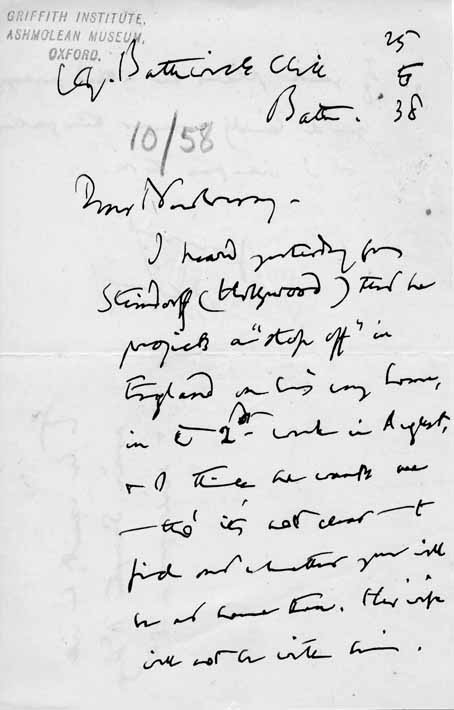 GRIFFITH INSTITUTE,
ASHMOLEAN MUSEUM,
OXFORD.
25
Bathwick Hill
5
Bath.
38
10/58
Dear Newberry -
I heard yesterday from
Steindorff (Hollywood) that he
projects a "stop off" in
England on his way home,
in 2nd week in August,
& I think he wants me
— tho' it's not clear — to
find out whether you will
be at home then. His wife
will not be with him.